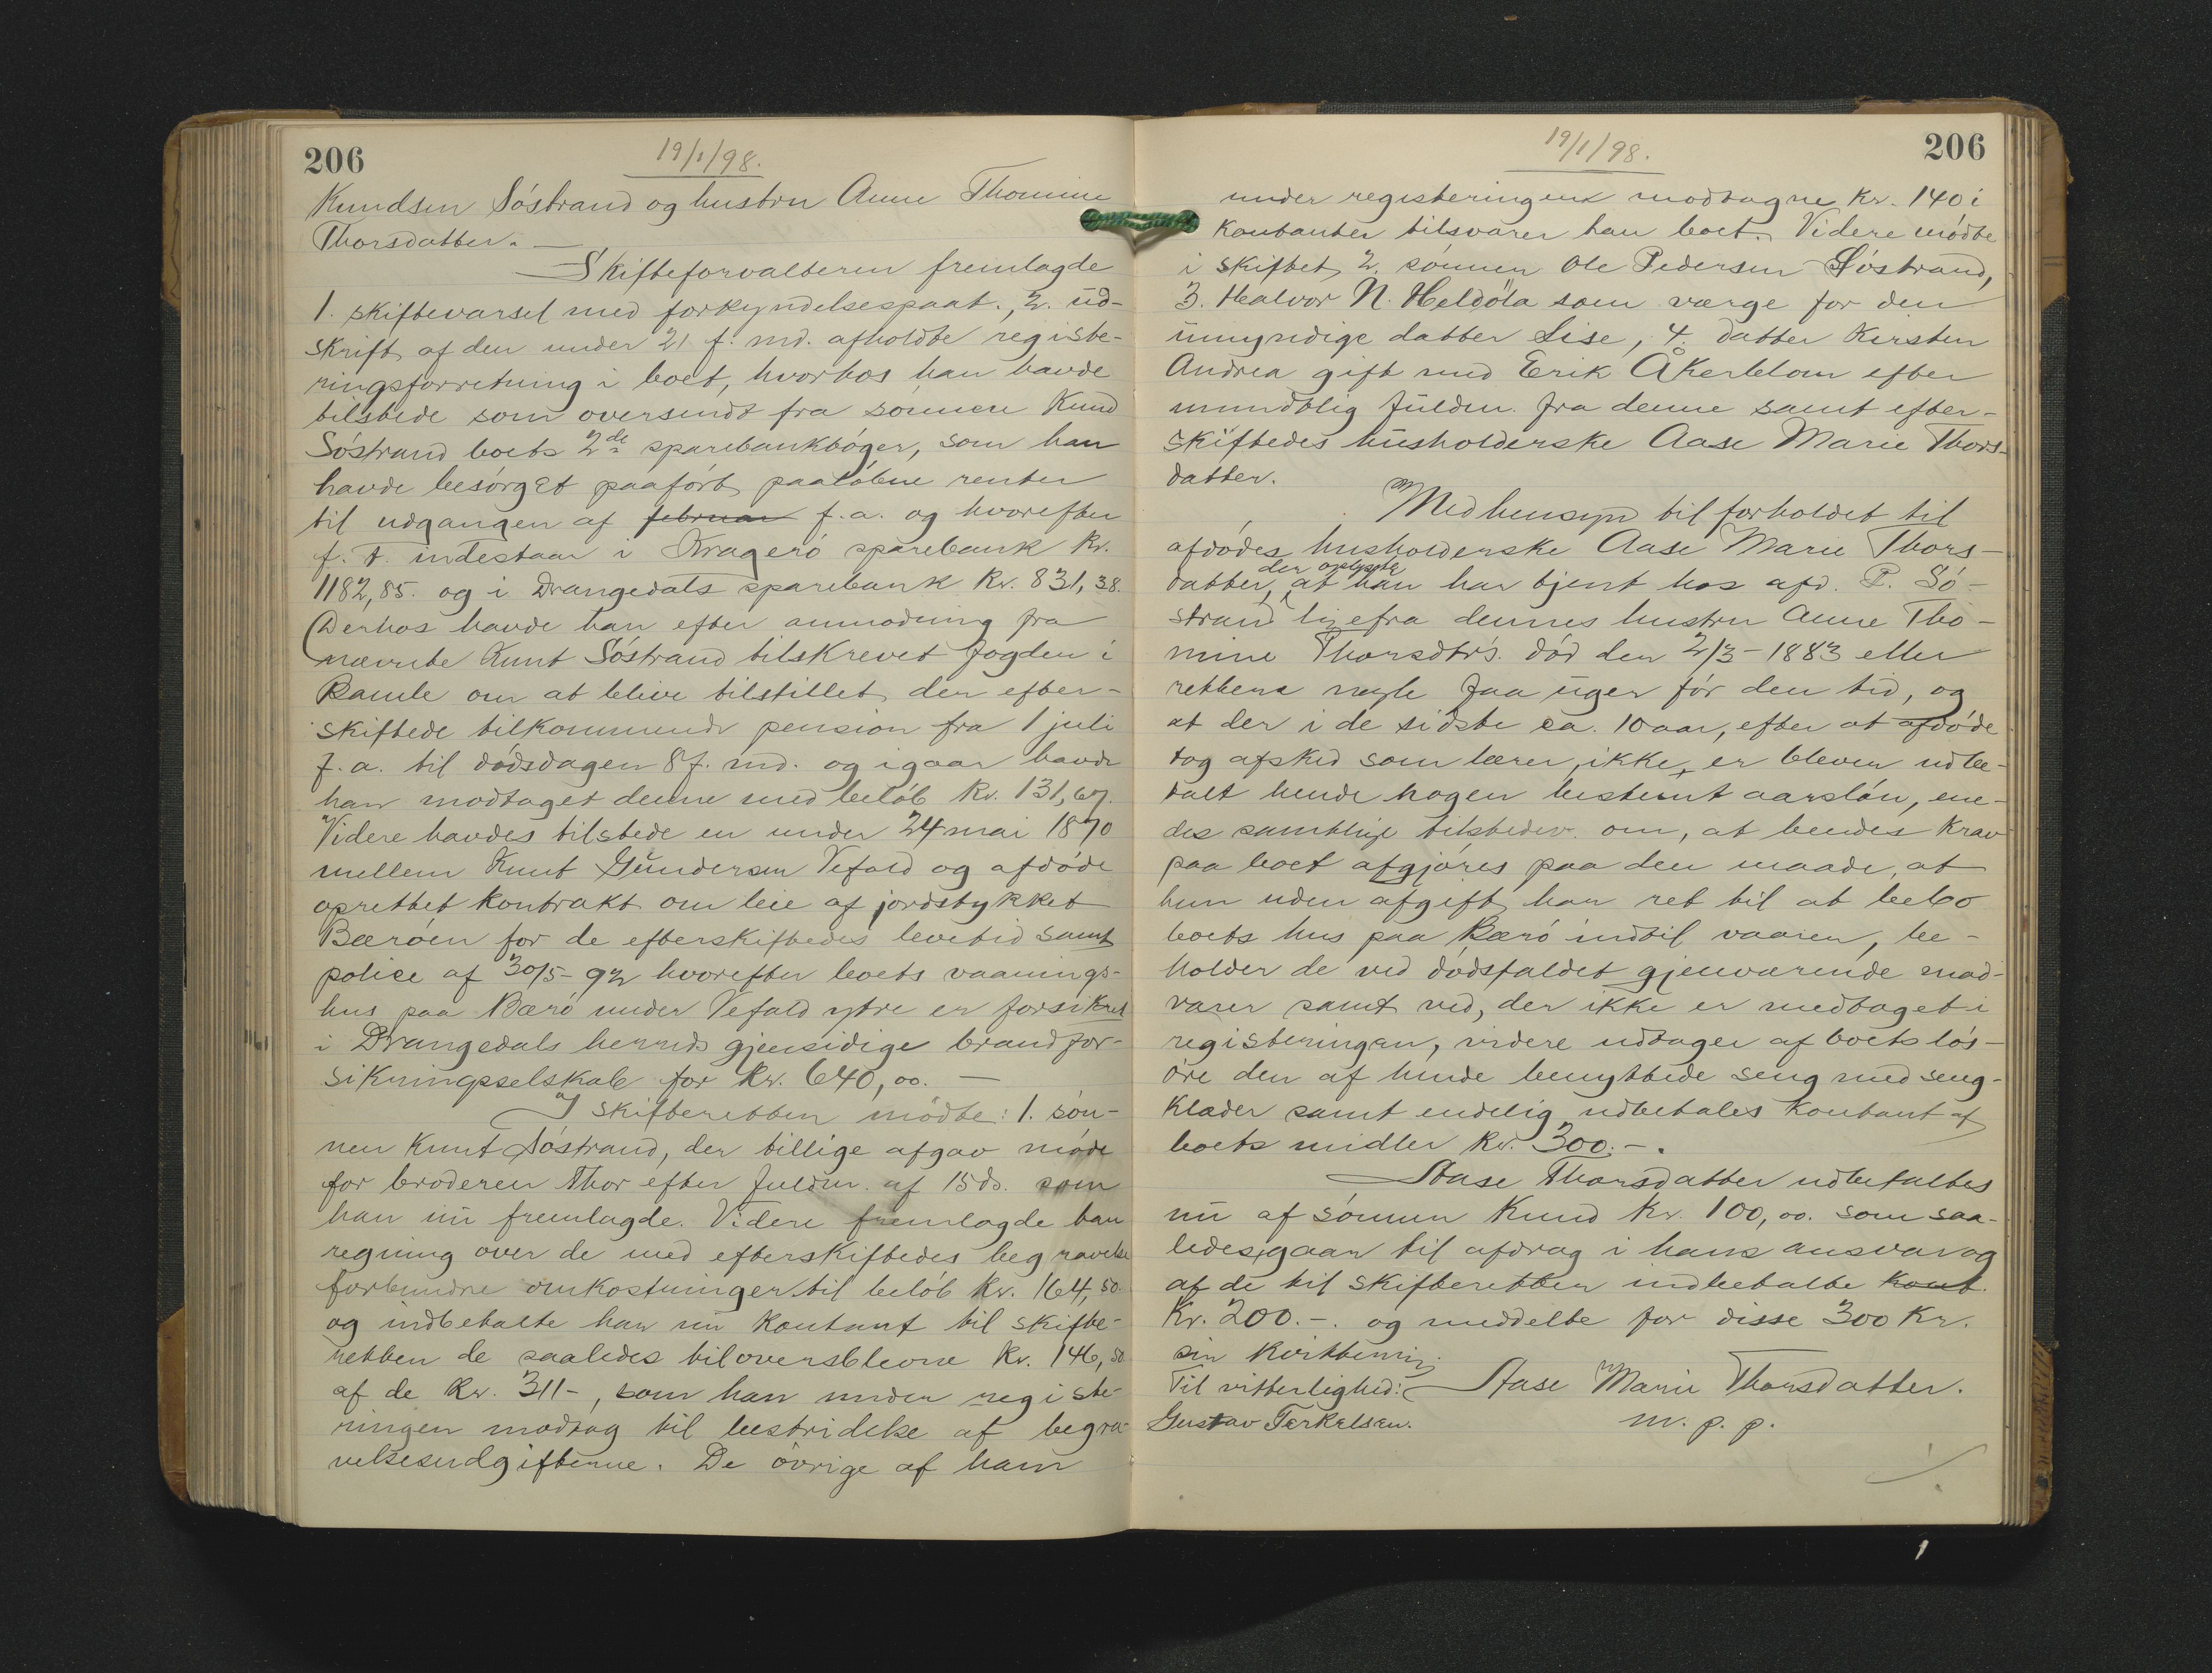 206
19/1/98.
Knudsen Søstrand og hustru Anne Thomine
Thorsdatter. —
Skifteforvalteren fremlagde
1. skiftevarsel med forkyndelsespaat., 2. ud-
skrift af den under 21 f. md. afholdte registe-
ringsforretning i boet, hvorhos han havde
tilstede som oversendt fra sønnen Knud
Søstrand boets 2de sparebankbøger, som han
havde besørget paaført paaløbne renter
til udgangen af februar f.a. og hvorefter
f. t. indestaar i Kragerø sparebank Kr.
1182,85. og i Drangedals sparebank Kr. 831,38.
Derhos havde han efter anmodning fra
nævnte Knut Søstrand tilskrevet fogden i
Bamle om at blive tilstillet den efter-
skiftede tilkommende pension fra 1 juli
f.a. til dødsdagen 8 f. md. og igaar havde
han modtaget denne med beløb Kr. 131,67.
Videre havdes tilstede en under 24 mai 1870
mellem Knut Gundersen Vefald og afdøde
oprettet kontrakt om leie af jordstykket
Bærøen for de efterskiftedes levetid samt
police af 30/5-92 hvorefter boets vaanings-
hus paa Bærø under Vefald ytre er forsikret
i Drangedals herreds gjensidige brandfor-
sikringsselskab for Kr. 640,00. —
I skifteretten mødte: 1. søn-
nen Knut Søstrand, der tillige afgav møde
for broderen Thor efter fuldm. af 15 ds. som
han nu fremlagde. Videre fremlagde han
regning over de med efterskiftedes begravelse
forbundne omkostninger til beløb Kr. 164,50
og indbetalte han nu kontant til skifte-
retten de saaledes tiloversblevne Kr. 146,50
af de Kr. 311-, som han under registe-
ringen modtog til bestridelse af begra-
velsesudgifterne. De øvrige af ham
206
19/1/98.
under registeringen modtagne Kr. 140 i
kontanter tilsvarer han boet. Videre mødte
i skiftet 2. sønnen Ole Pedersen Søstrand,
3. Halvor N. Heldøla som værge for den
umyndige datter Lise, 4. datter Kirsten
Andrea gift med Erik Åkerblom efter
mundtlig fuldm. fra denne samt efter-
skiftedes husholderske Aase Marie Thors-
datter.
Med hensyn til forholdet til
afdødes husholderske Aase Marie Thors-
datter, der oplyste at hun har tjent hos afd. P. Sø-
strand ligefra dennes hustru Anne Tho-
mine Thorsdtr's. død den 2/3-1883 eller
rettere nogle faa uger før den tid, og
at der i de sidste ca. 10 aar, efter at afdøde
tog afsked som lærer, ikke er bleven udbe-
talt hende nogen bestemt aarsløn, ene-
des samtlige tilstedev. om, at hendes krav
paa boet afgjøres paa den maade, at
hun uden afgift har ret til at bebo
boets hus paa Bærø indtil vaaren, be-
holder de ved dødsfaldet gjenværende mad-
varer samt ved, der ikke er medtaget i
registeringen, videre udtager af boets løs-
øre den af hende benyttede seng med seng-
klæder samt endelig udbetales kontant af
boets midler Kr. 300.-.
Aase Thorsdatter udbetaltes
nu af sønnen Knud Kr. 100,00. som saa-
ledes gaar til afdrag i hans ansvar og
af de til skifteretten indbetalte kont.
Kr. 200.-. og meddelte for disse 300 Kr.
sin kvittering
Til vitterlighed: Aase Marie Thorsdatter.
Gustav Terkelsen. m. p. p.